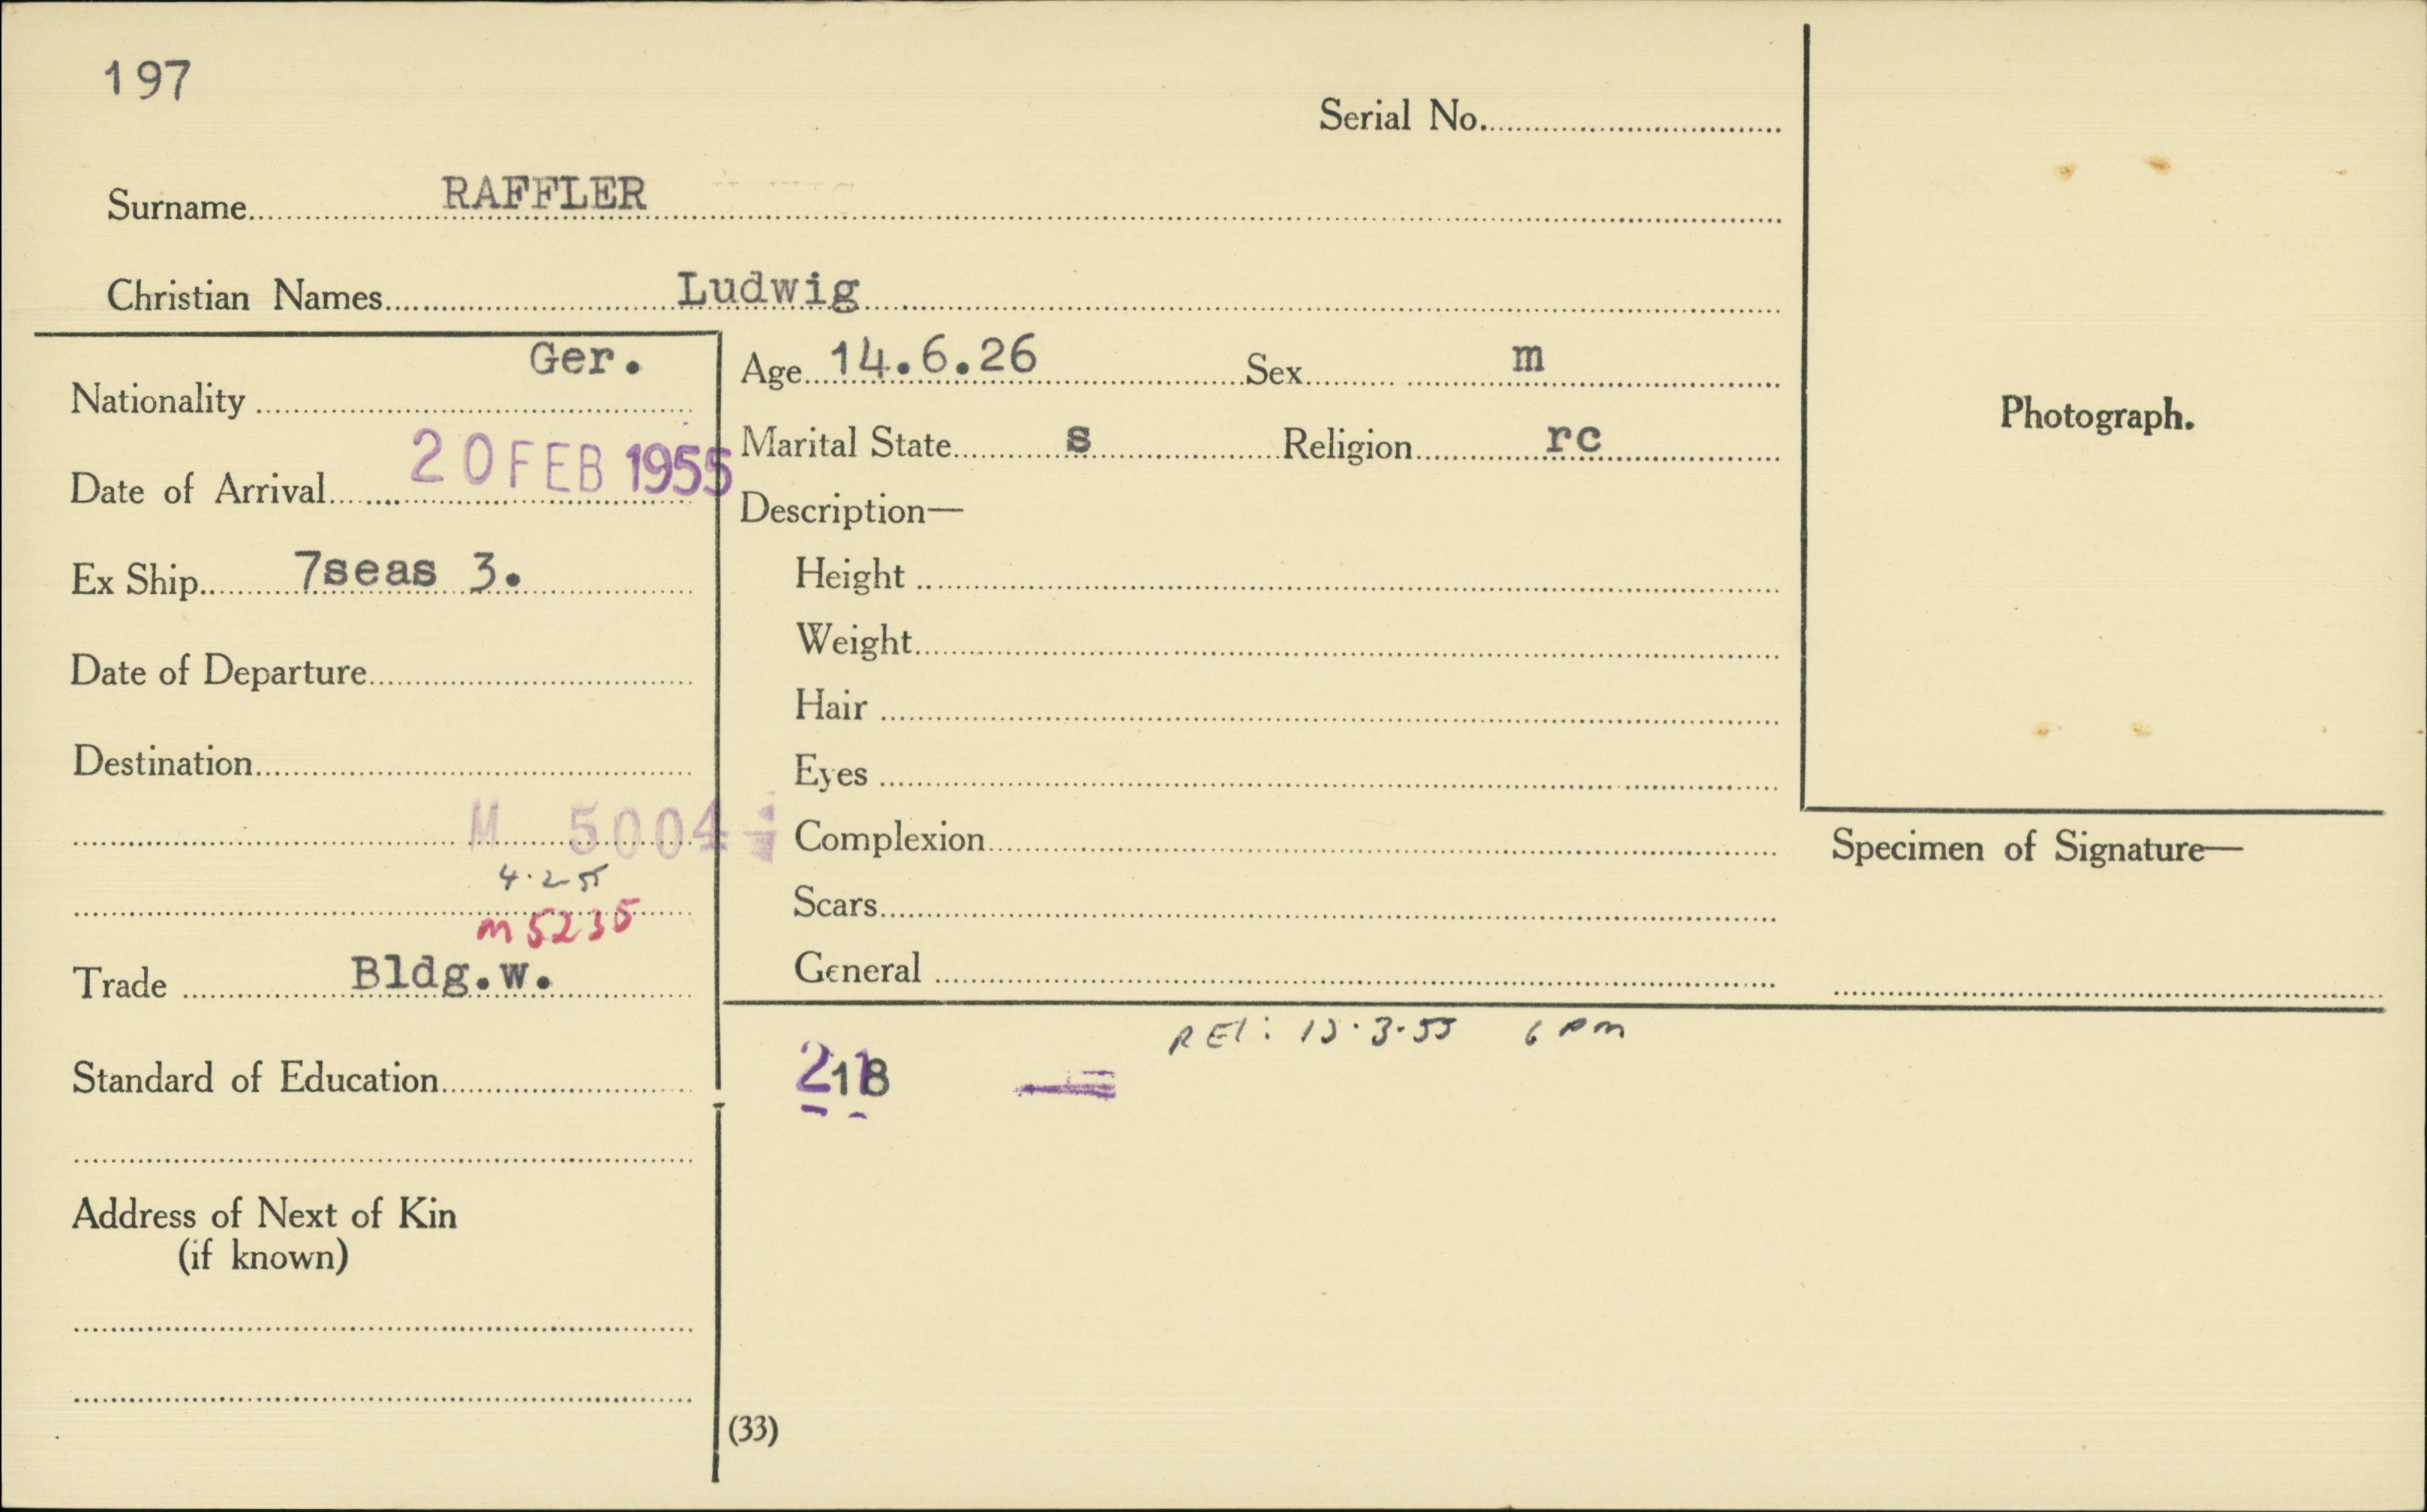 197
Serial No.
Surname RAFFLER
Christian Names Ludwig
Nationality Ger.
Date of Arrival 20 FEB 1955
Ex Ship 7seas 3.
Date of Departure
Destination
M 5004
4.2.55
m 5235
Trade Bldg.w.
Standard of Education
Address of Next of Kin
(if known)
Age 14.6.26 Sex m
Marital State s Religion rc
Description—
Height
Weight
Hair
Eyes
Complexion
Scars
General
Photograph.
Specimen of Signature—
REL: 3.55 6 pm
218
(33)